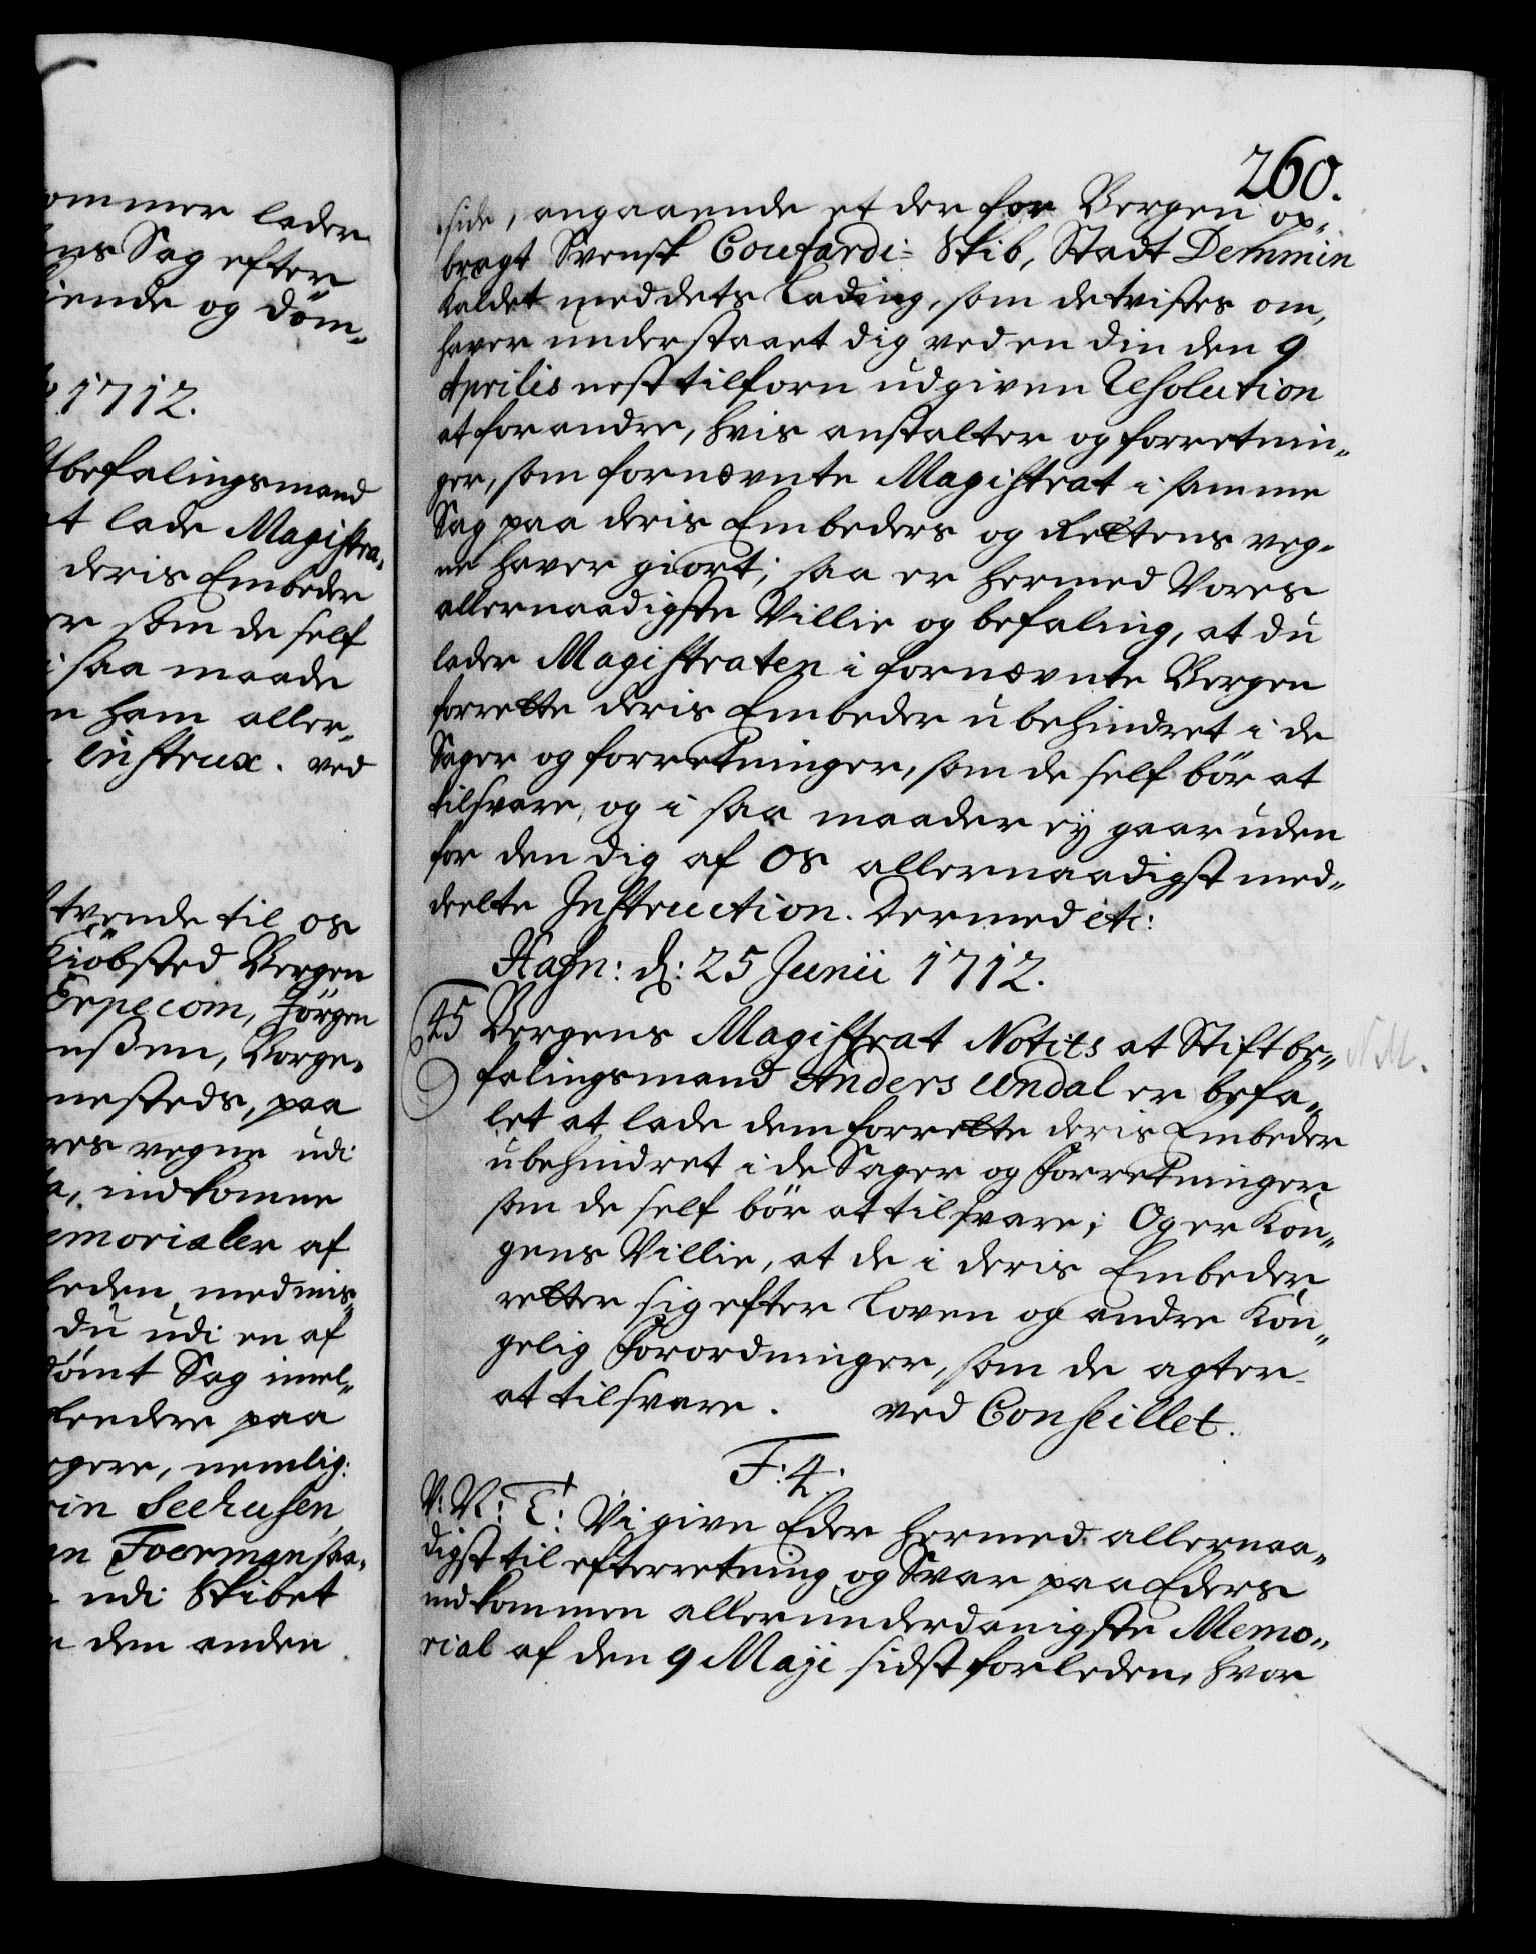 ommer lader
ns Sag efter
iende og döm-
1712.
tbefalingsmand
t lade Magistra-
deris Embeder
er som de self
i saa maade
n ham aller-
instrux. ved
tvende til os
Kiöbsted Bergen
Erpecom, Jörgen
nßen, Borge-
nesteds, paa
res vegne udi
a, indkomne
emorialer af
leden, med mis-
du udi en af
dömt Sag imel-
lendere paa
gere, nemlig:
rin Seehusen
n Foerman saa-
udi Skibet
den anden
260.
side, angaaende et der for Bergen op-
bragt Svensk Coufardi- Skib, Stadt Demmin
kaldet med dets Lading, som detvistes om,
haver understaaet dig ved en din den 9
Aprilis nest tilforn udgiven Resolution
at forandre, hvis anstalter og forretnin-
ger, som fornævnte Magistrat i samme
Sag paa deris Embeders og Rettens veg-
ne haver giort; saa er hermed Vores
allernaadigste Villie og befaling, at du
lader Magistraten i fornævnte Bergen
forrette deris Embeder ubehindret i de
Sager og forretninger, som de self bör at
tilsvare, og i saa maader ey gaar uden
for den dig af Os allernaadigst med-
deelte Instruction. Dermed etc:
Hafn: d: 25 Junii 1712.
45 Bergens Magistrat Notits at Stiftbe-
NM.
falingsmand Anders Undal er befa-
let at lade dem forrette deris Embeder
ubehindret i de Sager og Forretninger
som de self bör at tilsvare; Og er Kon-
gens Villie, at de i deris Embeder
retter sig efter Loven og andre Kon-
gelig Forordninger, som de agter
at tilsvare. ved Conseillet.
F: 4.
V: N: T: Vi give Eder hermed allernaa-
digst til efterretning og Svar paa Eders
indkommen allerunderdanigste Memo-
rial af den 9 Maji sidst forleden, hvor